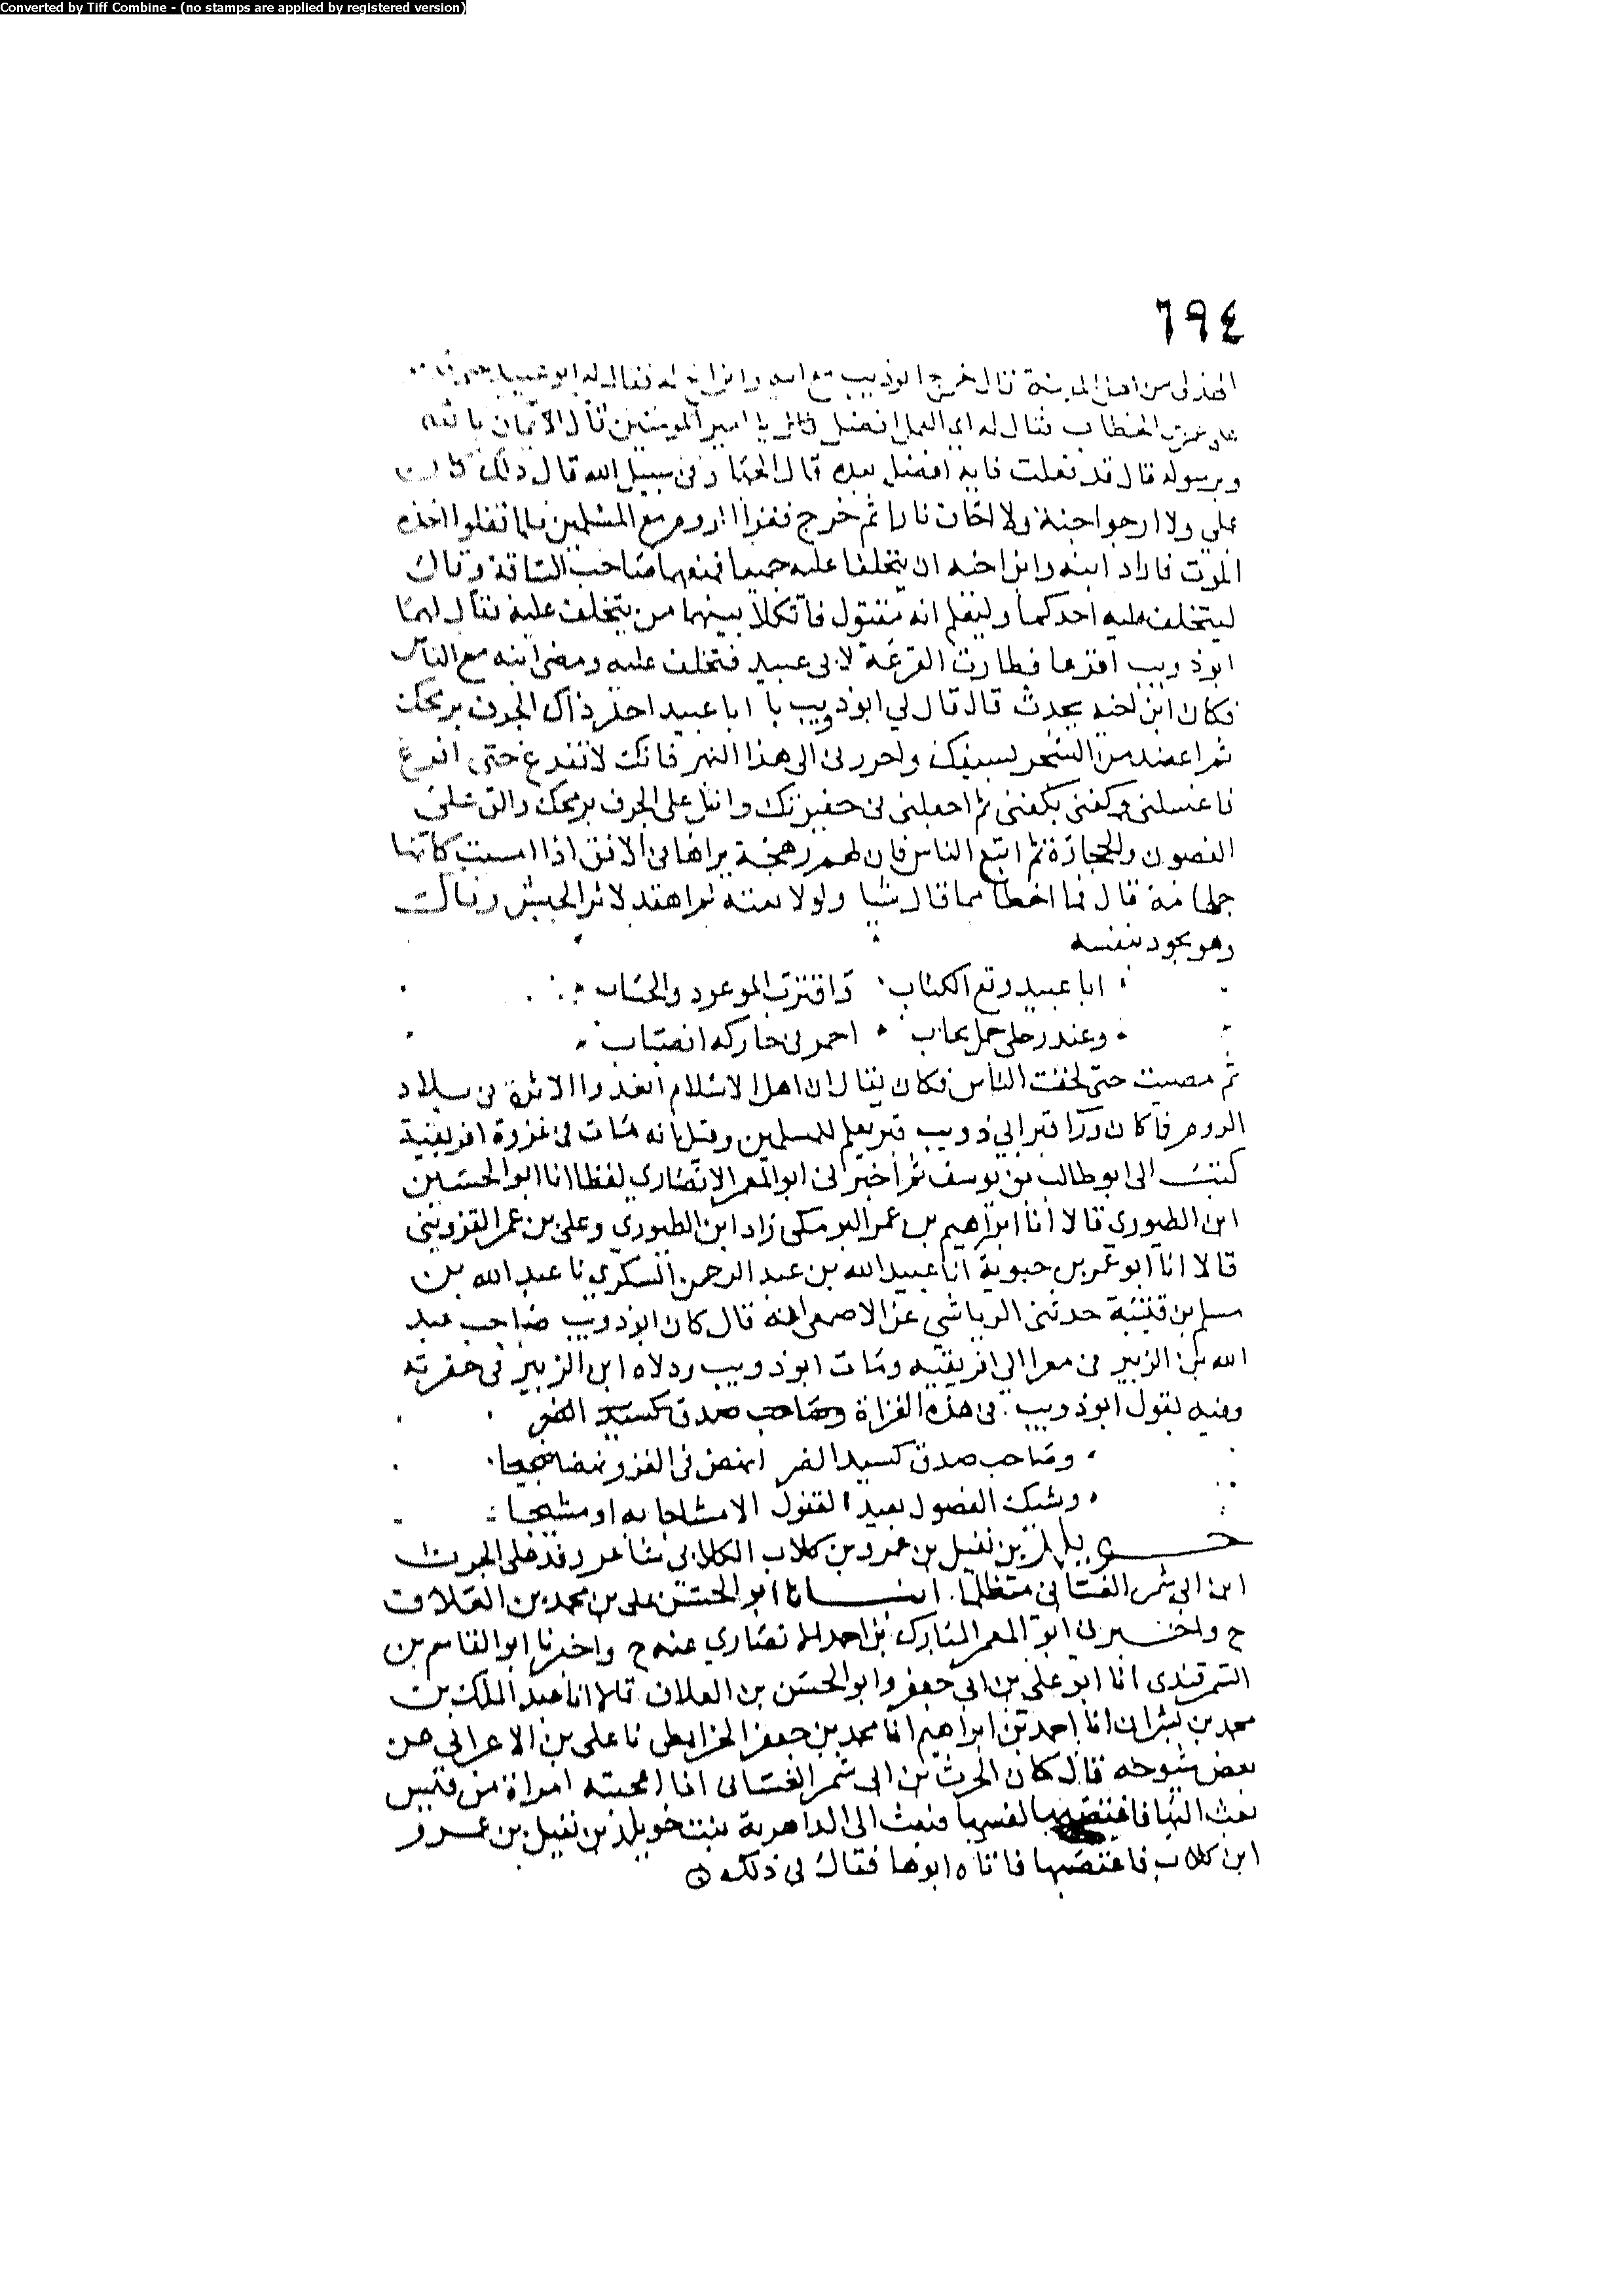 Converted by Tiff Combine - (no stamps are applied by registered version)
٦٩٤
الهذلي من اهل المدينة قال خرج ابو ذويب مع ابنه وابن اخ له يقال له ابو عبيد حتى
على عمر بن الخطاب فقال له اي العمل افضل يا امير المومنين قال الايمان بالله
وبرسوله قال قد فعلت فايه افضل بعده قال الجهاد في سبيل الله قال ذلك كان
علي ولا ارجوا جنة ولا اخاف نارا ثم خرج فغزا الروم مع المسلمين فلما قفلوا اخذه
الموت فاراد ابنه وابن اخيه ان يتخلفا عليه جميعا فمنعهما صاحب الساقة وقال
ليتخلف عليه احدكما وليعلم انه مقتول فاتكلا بينهما من يتخلف عليه فقال لهما
ابو ذويب اقترعا فطارت القرعة لابي عبيد فتخلف عليه ومضى ابنه مع الناس
فكان ابن اخيه يحدث قال قال لي ابو ذويب يا ابا عبيد احفر ذاك الجرف برمحك
ثم اعضد من الشجر بسيفك واجررني الى هذا النهر فانك لا تفرغ حتى افرغ
فاغسلني وكفني بكفني ثم اجعلني في حفيرتك وانثل علي الجرف برمحك والق علي
الغصون والحجارة ثم اتبع الناس فان لهم رهجة تراها في الافق اذا امسيت كانها
جهامة قال فما اخطا مما قال شيا ولولا نعته لم اهتد لاثر الجيش وقال
وهو يجود بنفسه
ابا عبيد وقع الكتاب واقترب الموعود والحساب
وعند رحلي جمل نجاب احمر في حاركه انصباب
ثم مضيت حتى لحقت الناس فكان يقال ان اهل الاسلام ابعدوا الاثرة في بلاد
الروم فما كان ورآ قبر ابي ذويب قبر يعلم للمسلمين وقيل انه مات في غزوة افريقية
كتب الي ابو طالب بن يوسف ثم اخبرني ابو المعمر الانصاري لفظا انا ابو الحسين
ابن الطيوري قالا انا ابراهيم بن عمر البرمكي زاد ابن الطيوري وعلي بن عمر القزويني
قالا انا ابو عمر بن حيوية انا عبيد الله بن عبد الرحمن السكري نا عبد الله بن
مسلم بن قتيبة حدثني الرياشي عن الاصمعي قال كان ابو ذويب صاحب عبد
الله بن الزبير في مغزاه الى افريقيه ومات ابو ذويب ودلاه ابن الزبير في حفرته
وفيه يقول ابو ذويب في هذه الغزاة وصاحب صدق كسيد الضر
وصاحب صدق كسيد الضر انهض في الغزو نهضا نجيحا
وشيك الفصول بعيد القفول الا مشاحا به او مشيحا
خويلد بن نفيل بن عمرو بن كلاب الكلابي شاعر وفد على الحرث
ابن ابي شمر الغساني متظلما انبانا ابو الحسن علي بن محمد بن العلاف
ح واخبرني ابو المعمر المبارك بن احمد الانصاري عنه ح واخبرنا ابو القاسم بن
السمرقندي انا ابو علي بن ابي جعفر وابو الحسن بن العلاف قالا انا عبد الملك بن
محمد بن بشران انا احمد بن ابراهيم انا محمد بن جعفر الخرايطي نا علي بن الاعرابي عن
بعض شيوخه قال كان الحرث بن ابي شمر الغساني اذا اعجبته امراة من قيس
بعث اليها فاغتصبها لنفسها فبعث الى الداهرية بنت خويلد بن نفيل بن عمرو
ابن كلاب فاغتصبها فاتاه ابوها فقال في ذلك